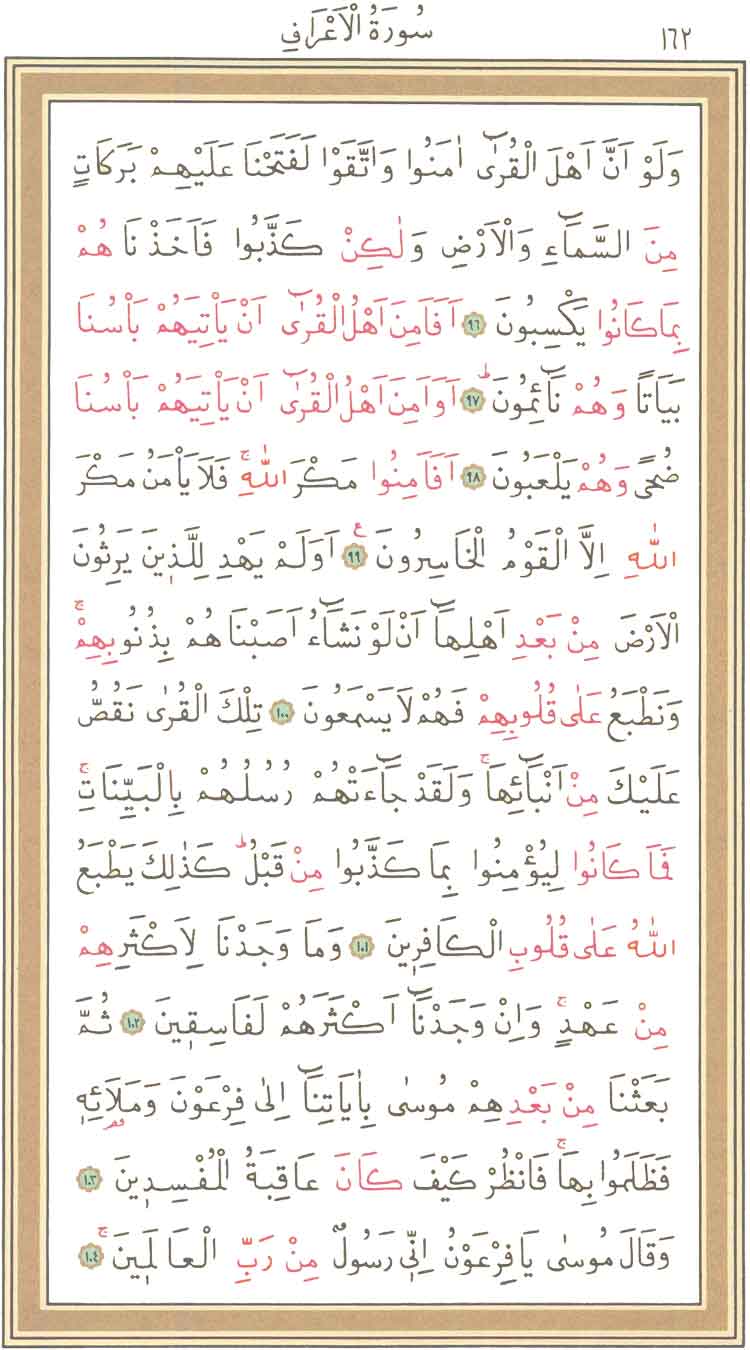 ١٦٢ سُورَةُ الْاَعْرَافِ
وَلَوْ اَنَّ اَهْلَ الْقُرٰٓى اٰمَنُوا وَاتَّقَوْا لَفَتَحْنَا عَلَيْهِمْ بَرَكَاتٍ
مِنَ السَّمَٓاءِ وَالْاَرْضِ وَلٰكِنْ كَذَّبُوا فَاَخَذْنَاهُمْ
بِمَا كَانُوا يَكْسِبُونَ ﴿٩٦﴾ اَفَاَمِنَ اَهْلُ الْقُرٰٓى اَنْ يَأْتِيَهُمْ بَأْسُنَا
بَيَاتًا وَهُمْ نَٓائِمُونَۜ ﴿٩٧﴾ اَوَاَمِنَ اَهْلُ الْقُرٰٓى اَنْ يَأْتِيَهُمْ بَأْسُنَا
ضُحًى وَهُمْ يَلْعَبُونَ ﴿٩٨﴾ اَفَاَمِنُوا مَكْرَ اللّٰهِۚ فَلَا يَأْمَنُ مَكْرَ
اللّٰهِ اِلَّا الْقَوْمُ الْخَاسِرُونَ۟ ﴿٩٩﴾ اَوَلَمْ يَهْدِ لِلَّذٖينَ يَرِثُونَ
الْاَرْضَ مِنْ بَعْدِ اَهْلِهَٓا اَنْ لَوْ نَشَٓاءُ اَصَبْنَاهُمْ بِذُنُوبِهِمْۚ
وَنَطْبَعُ عَلٰى قُلُوبِهِمْ فَهُمْ لَا يَسْمَعُونَ ﴿١٠٠﴾ تِلْكَ الْقُرٰى نَقُصُّ
عَلَيْكَ مِنْ اَنْبَٓائِهَاۚ وَلَقَدْ جَٓاءَتْهُمْ رُسُلُهُمْ بِالْبَيِّنَاتِۚ
فَمَا كَانُوا لِيُؤْمِنُوا بِمَا كَذَّبُوا مِنْ قَبْلُۜ كَذٰلِكَ يَطْبَعُ
اللّٰهُ عَلٰى قُلُوبِ الْكَافِرٖينَ ﴿١٠١﴾ وَمَا وَجَدْنَا لِاَكْثَرِهِمْ
مِنْ عَهْدٍۚ وَاِنْ وَجَدْنَٓا اَكْثَرَهُمْ لَفَاسِقٖينَ ﴿١٠٢﴾ ثُمَّ
بَعَثْنَا مِنْ بَعْدِهِمْ مُوسٰى بِاٰيَاتِنَٓا اِلٰى فِرْعَوْنَ وَمَلَا۬ئِهٖ
فَظَلَمُوا بِهَاۚ فَانْظُرْ كَيْفَ كَانَ عَاقِبَةُ الْمُفْسِدٖينَ ﴿١٠٣﴾
وَقَالَ مُوسٰى يَا فِرْعَوْنُ اِنّٖى رَسُولٌ مِنْ رَبِّ الْعَالَمٖينَۚ ﴿١٠٤﴾